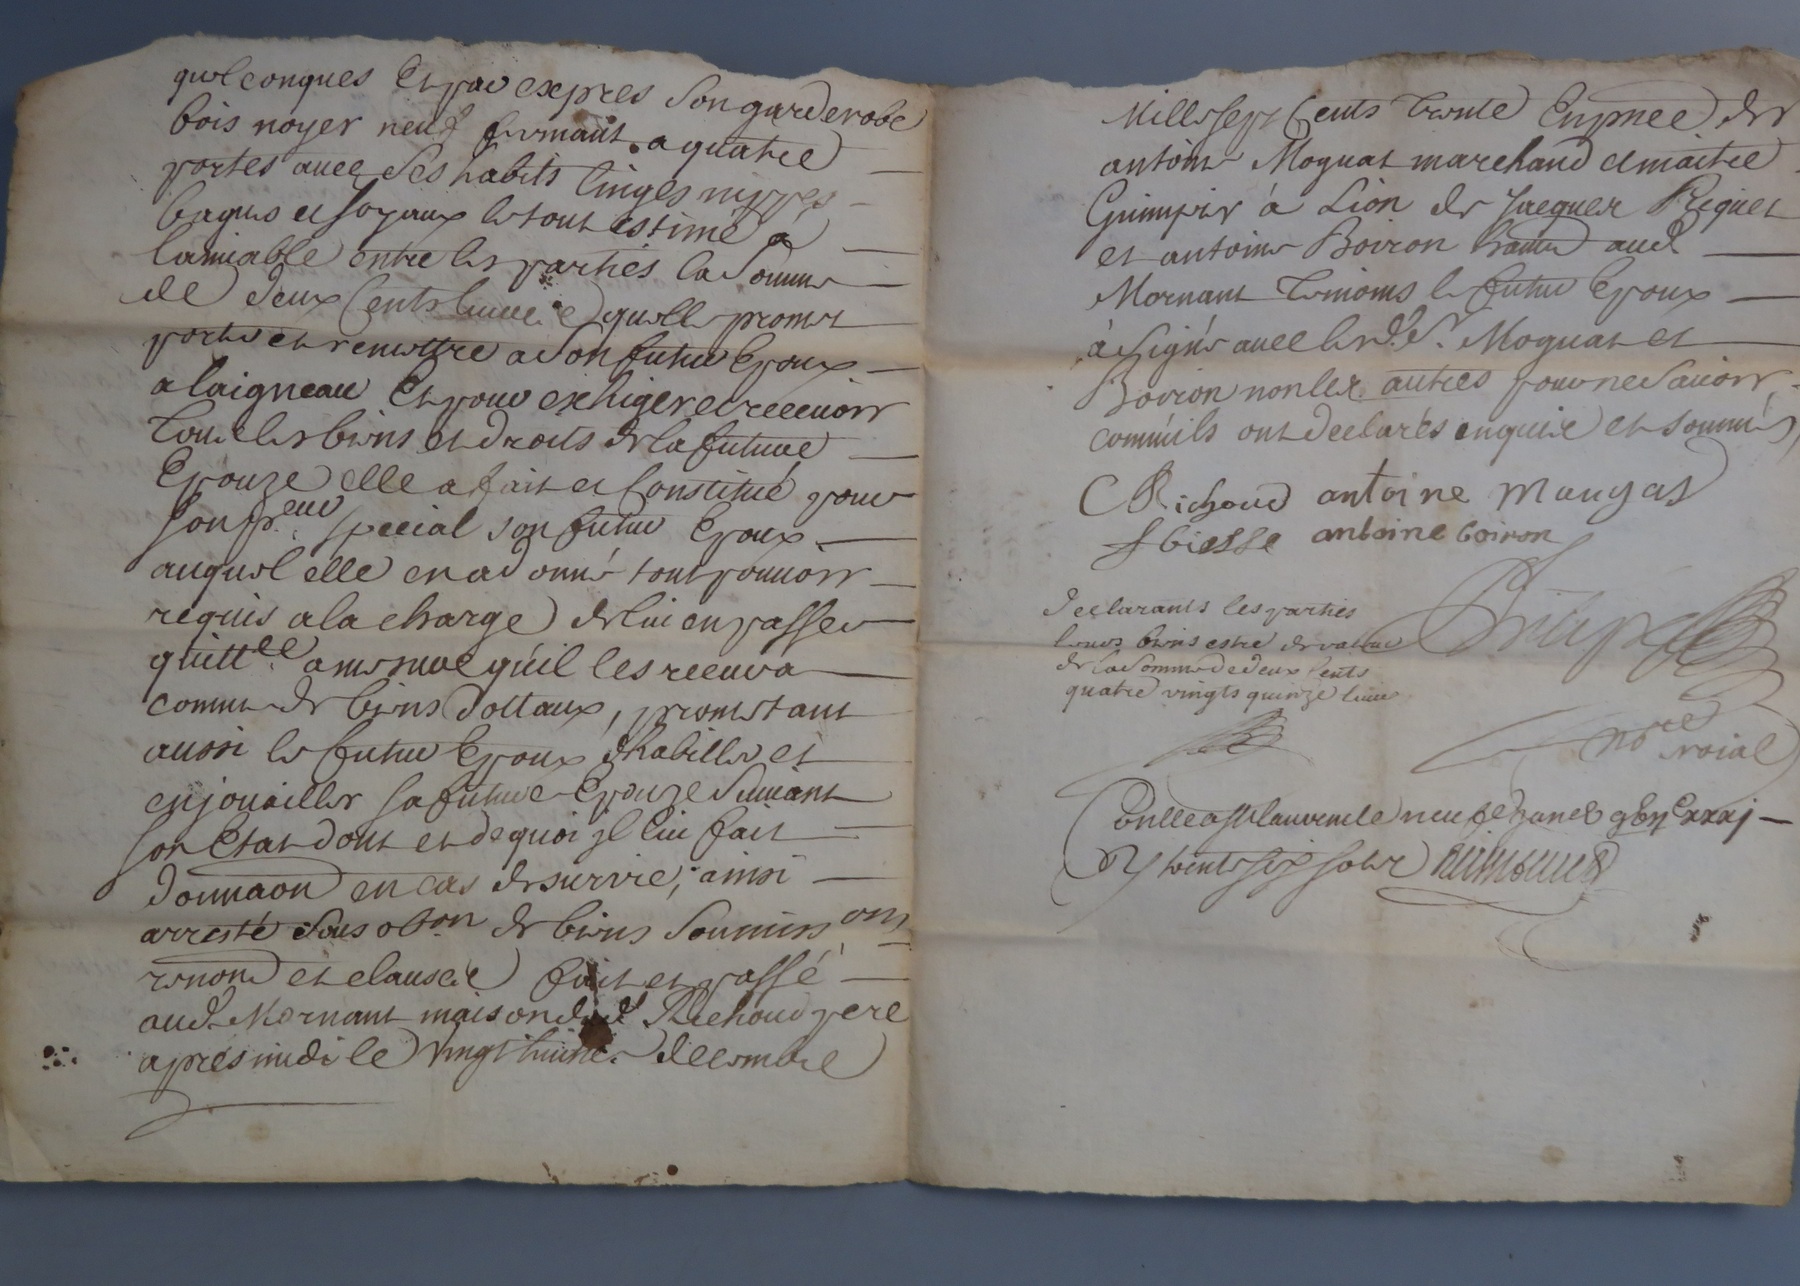 quelconques Et par expres son garderobe
bois noyer neuf fermant a quatre
portes avec ses habits linges nippes
bagues et joyaux le tout estimé a
lamiable entre les parties la somme
de deux cents livres quelle promet
porter et remettre a son futur Epoux
a laigneau Et pour exhiger et recevoir
tous les biens et droits de la future
Epouze elle a fait et Constitué pour
son pr.eur special son futur Epoux
auquel elle en a donné tout pouvoir
requis a la charge de lui en passer
quitt.ce a mesure qu'il les recevra
comme de biens dottaux, promettant
aussi le futur Epoux d'habiller et
enjouailler sa future Epouze suivant
son Etat dont et de quoi il lui fait
donnaon en cas de survie, ainsi
arresté sous obon de biens soumissons
renond et clauses fait et passé
aud. Mornant maison dud. Richoud pere
apres midi le vingt huit decembre
Mille sept Cents trente En pnce de
antoine Moguat marchand et maitre
Guimpier à Lion de Jacques Piquet
et antoine Boiron hants aud.
Mornant temoins le futur Epoux
à signé avec les d. Sr. Moguat et
Boiron non les autres pour ne savoir
comm'ils ont declarés enquis et sommés
C Richoud antoine Maugas
f biesse antoine boiron
declarants les parties
leurs biens estre de valeur
de la somme de deux cents
quatre vingts quinze livres
nore roial
Conlle a St laurent le neuf janer
Rs trente six sols